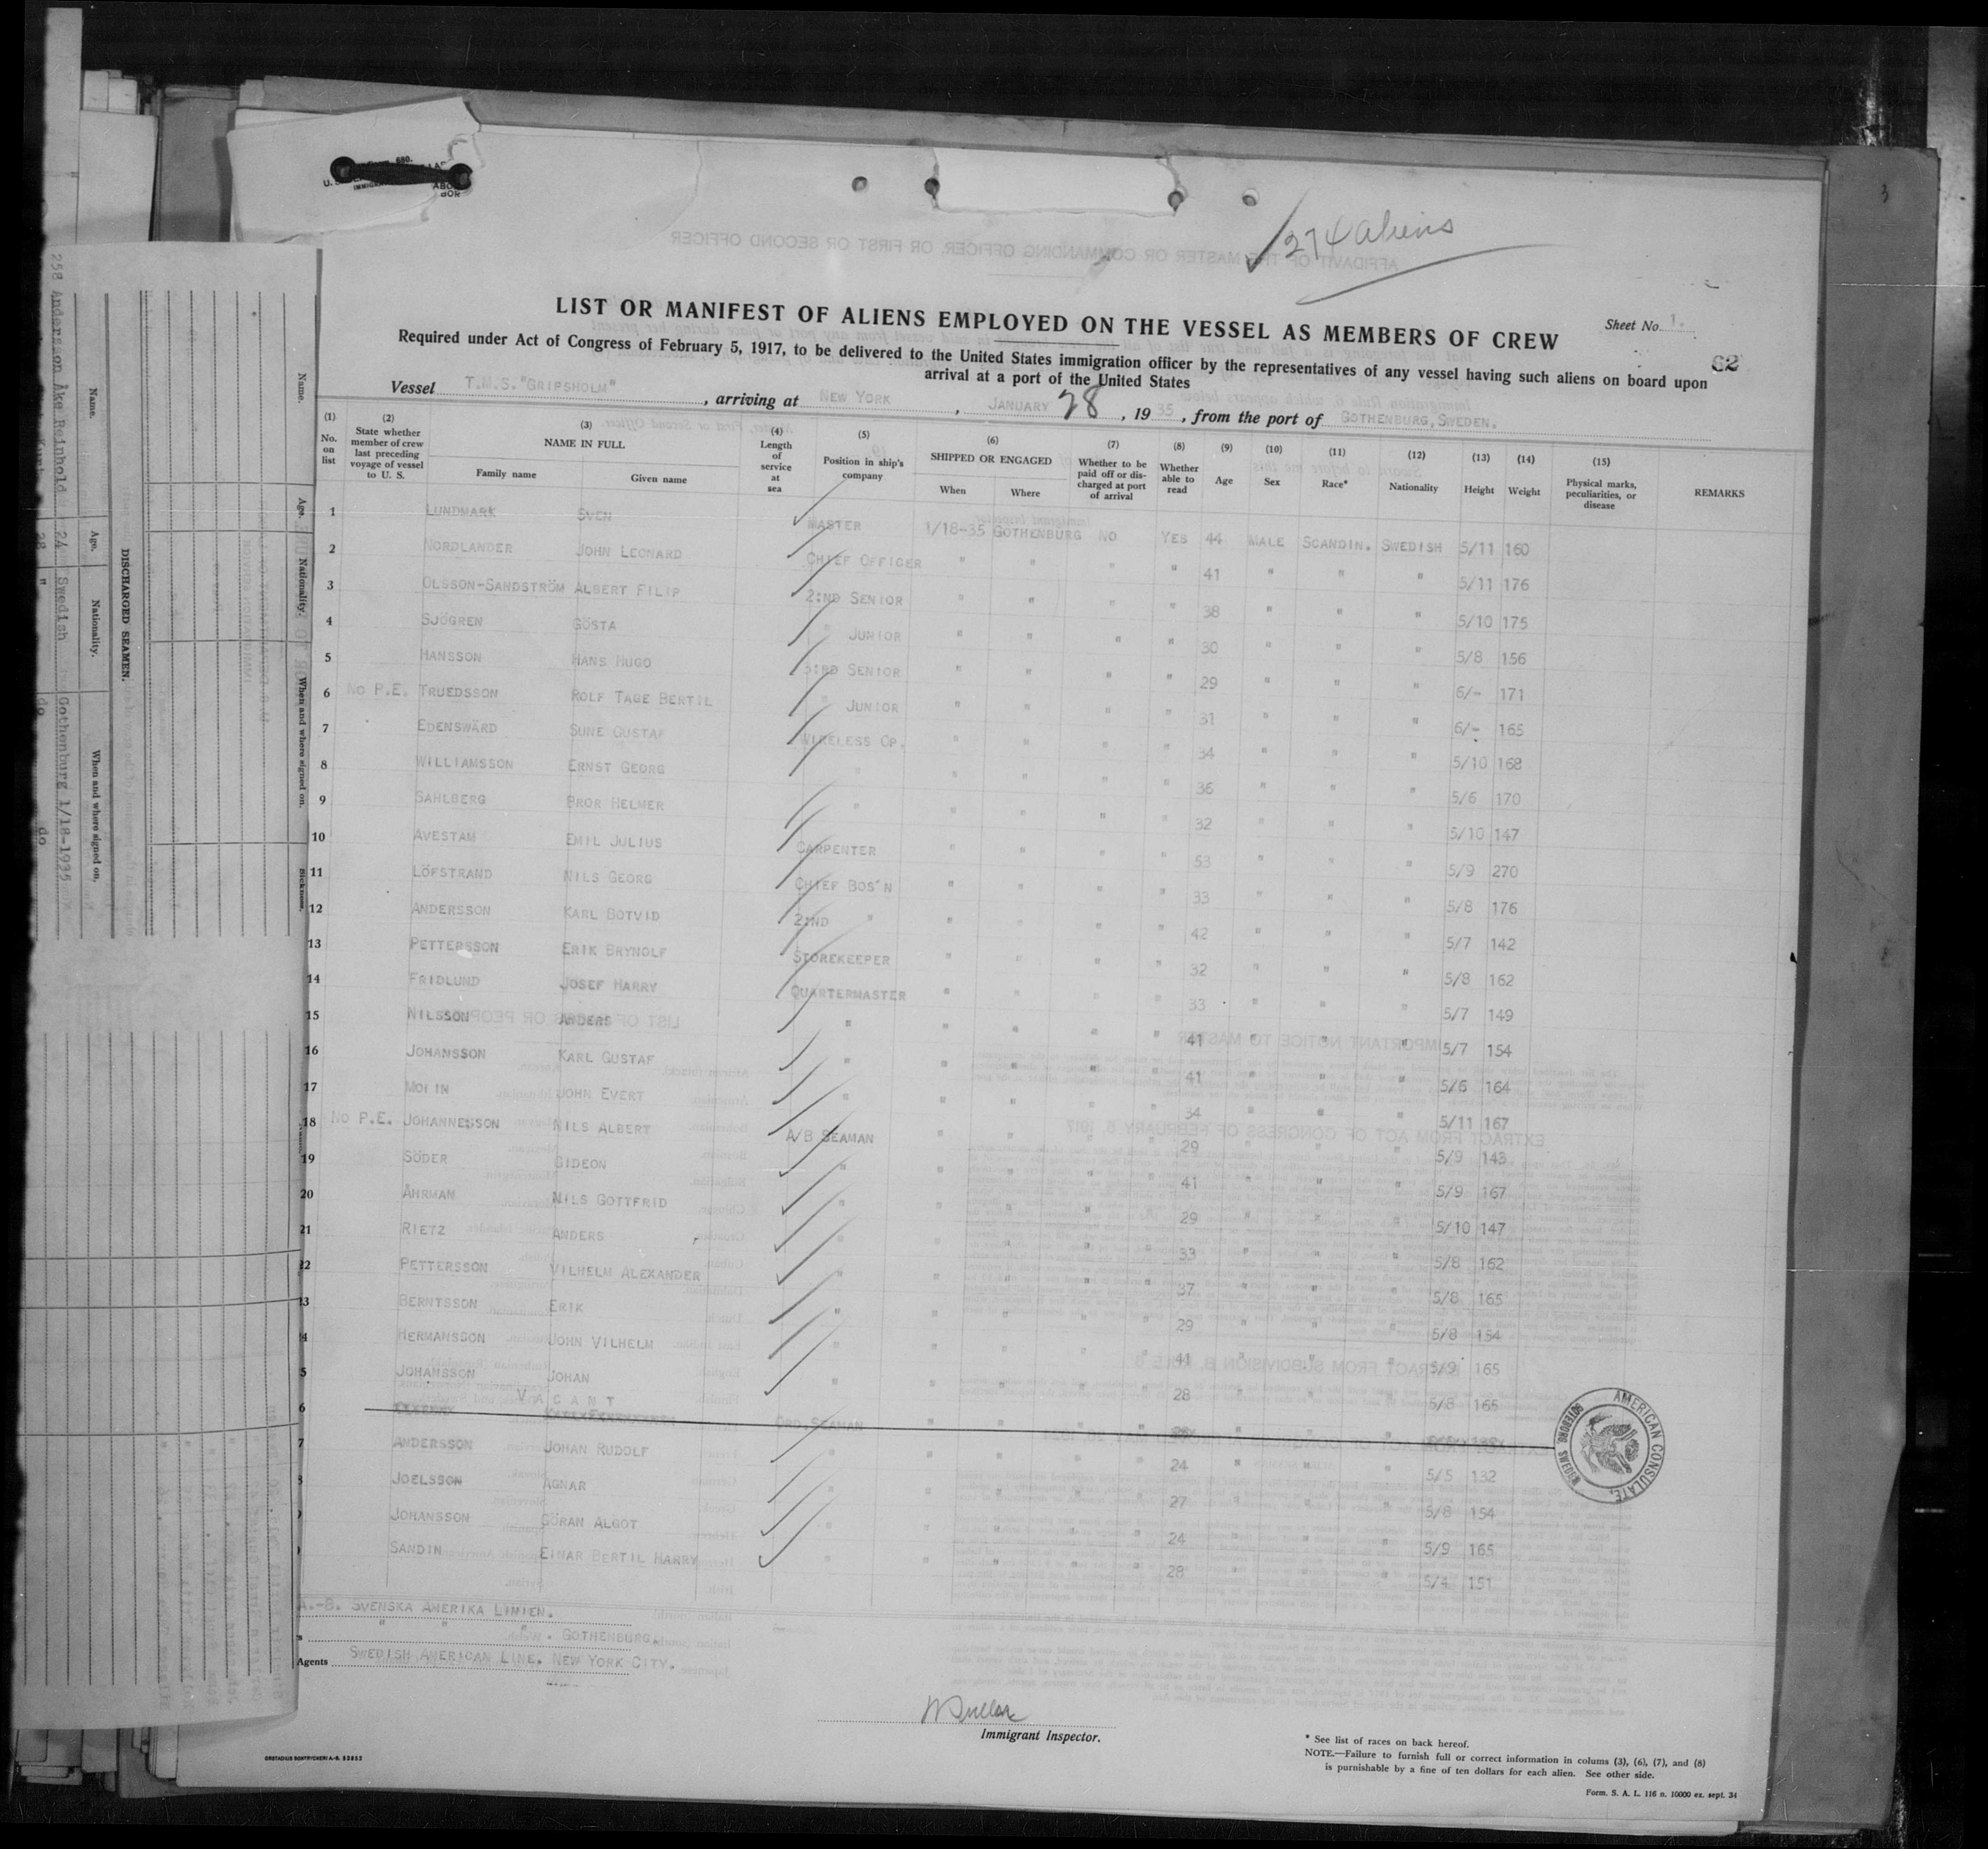 274 aliens
LIST OR MANIFEST OF ALIENS EMPLOYED ON THE VESSEL AS MEMBERS OF CREW
Sheet No. 1.
62
Required under Act of Congress of February 5, 1917, to be delivered to the United States immigration officer by the representatives of any vessel having such aliens on board upon
arrival at a port of the United States
Vessel T.M.S. "GRIPSHOLM", arriving at NEW YORK, JANUARY 28, 1935, from the port of GOTHENBURG, SWEDEN.
(1) No. on list (2) State whether member of crew last preceding voyage of vessel to U. S. (3) NAME IN FULL Family name Given name (4) Length of service at sea (5) Position in ship's company (6) SHIPPED OR ENGAGED When Where (7) Whether to be paid off or discharged at port of arrival (8) Whether able to read (9) Age (10) Sex (11) Race* (12) Nationality (13) Height (14) Weight (15) Physical marks, peculiarities, or disease REMARKS
1 LUNDMARK SVEN MASTER 1/18-35 GOTHENBURG NO YES 44 MALE SCANDIN. SWEDISH 5/11 160
2 NORDLANDER JOHN LEONARD CHIEF OFFICER " " " " 41 " " " 5/11 176
3 OLSSON-SANDSTRÖM ALBERT FILIP 2:ND SENIOR " " " " 38 " " " 5/10 175
4 SJÖGREN GÖSTA " JUNIOR " " " " 30 " " " 5/8 156
5 HANSSON HANS HUGO 3:RD SENIOR " " " " 29 " " " 6/- 171
6 NO P.E. TRUEDSSON ROLF TAGE BERTIL " JUNIOR " " " " 31 " " " 6/- 165
7 EDENSWÄRD SUNE GUSTAF WIRELESS OP. " " " " 34 " " " 5/10 168
8 WILLIAMSSON ERNST GEORG " " " " " 36 " " " 5/6 170
9 SAHLBERG BROR HELMER " " " " " 32 " " " 5/10 147
10 AVESTAM EMIL JULIUS CARPENTER " " " " 53 " " " 5/9 270
11 LÖFSTRAND NILS GEORG CHIEF BOS'N " " " " 33 " " " 5/8 176
12 ANDERSSON KARL BOTVID 2:ND " " " " " 42 " " " 5/7 142
13 PETTERSSON ERIK BRYNOLF STOREKEEPER " " " " 32 " " " 5/8 162
14 FRIDLUND JOSEF HARRY QUARTERMASTER " " " " 33 " " " 5/7 149
15 NILSSON ANDERS " " " " " 41 " " " 5/7 154
16 JOHANSSON KARL GUSTAF " " " " " 41 " " " 5/6 164
17 MOLIN JOHN EVERT " " " " " 34 " " " 5/11 167
18 NO P.E. JOHANNESSON NILS ALBERT A/B SEAMAN " " " " 29 " " " 5/9 143
19 SÖDER GIDEON " " " " " 41 " " " 5/9 167
20 ÅHRMAN NILS GOTTFRID " " " " " 29 " " " 5/10 147
21 RIETZ ANDERS " " " " " 33 " " " 5/8 162
22 PETTERSSON VILHELM ALEXANDER " " " " " 37 " " " 5/8 165
3 BERNTSSON ERIK " " " " " 29 " " " 5/8 154
4 HERMANSSON JOHN VILHELM " " " " " 41 " " " 5/9 165
5 JOHANSSON JOHAN " " " " " 28 " " " 5/8 165
6 VACANT ORD. SEAMAN
7 ANDERSSON JOHAN RUDOLF " " " " " 24 " " " 5/5 132
8 JOELSSON AGNAR " " " " " 27 " " " 5/8 154
JOHANSSON GÖRAN ALGOT " " " " " 24 " " " 5/9 165
SANDIN EINAR BERTIL HARRY " " " " " 28 " " " 5/4 151
A.-B. SVENSKA AMERIKA LINIEN.
" " " . GOTHENBURG.
Agents SWEDISH AMERICAN LINE. NEW YORK CITY.
Immigrant Inspector.
* See list of races on back hereof.
NOTE.—Failure to furnish full or correct information in colums (3), (6), (7), and (8)
is purnishable by a fine of ten dollars for each alien. See other side.
Form. S. A. L. 116 n. 10000 ex. sept. 34
AMERICAN CONSULATE,
GOTEBORG SWEDEN
DISCHARGED SEAMEN.
Name. Age. Nationality. When and where signed on.
258 Andersson Åke Reinhold 24 Swedish Gothenburg 1/18-1935
28 " do do
Name. Age. Nationality. When and where signed on.